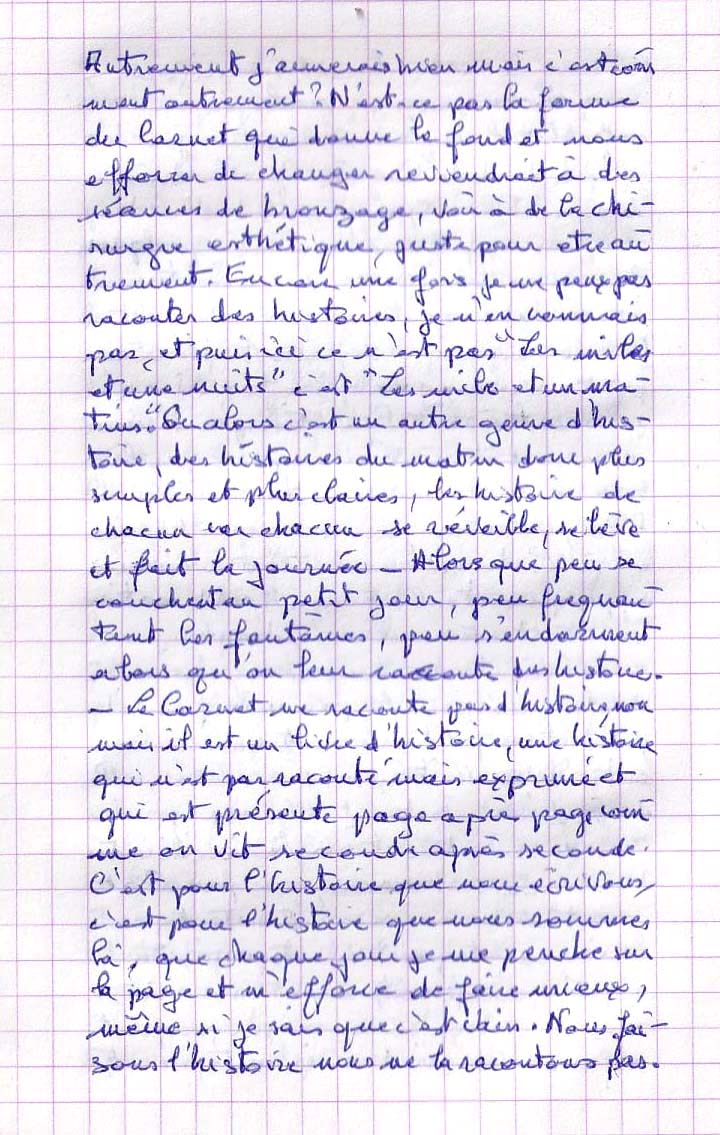 Autrement j'aimerais bien mais c'est com
ment autrement ? N'est-ce pas la forme
du Carnet qui donne le fond et nous
efforcer de changer reviendrait à des
séances de bronzage, voir à de la chi-
rurgie esthétique, juste pour être au
trement. Encore une fois je ne peux pas
raconter des histoires, je n'en connais
pas, et puis ici ce n'est pas "Les milles
et une nuits" c'est "Les milles et un ma-
tins". Ou alors c'est un autre genre d'his-
toire, des histoires du matin donc plus
simples et plus claires, les histoire de
chacun car chacun se réveille, se lève
et fait la journée – Alors que peu se
couchent au petit jour, peu fréquen
tent les fantômes, peu s'endorment
alors qu'on leur raconte des histoire.
– Le Carnet ne raconte pas d'histoire, non
mais il est un livre d'histoire, une histoire
qui n'est pas raconté mais exprimé et
qui est présente page après page com
me on vit seconde après seconde.
C'est pour l'histoire que nous écrivons,
c'est pour l'histoire que nous sommes
là, que chaque jour je me penche sur
la page et m'efforce de faire mieux,
même si je sais que c'est Nous fai-
sons l'histoire nous ne la racontons pas.